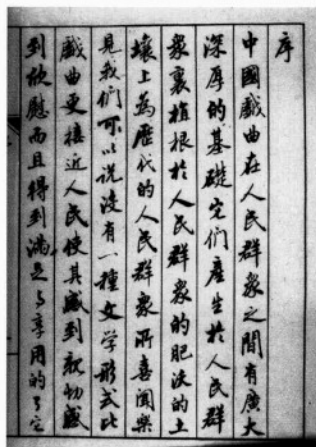 序
中國戲曲在人民群衆之間有廣大
深厚的基礎它們產生於人民群
衆裏植根於人民群衆的肥沃的土
壤上為歷代的人民群衆所喜闻樂
見我們可以说没有一種文学形式比
戲曲更接近人民使其感到親切感
到欣慰而且得到滿足与享用的了它